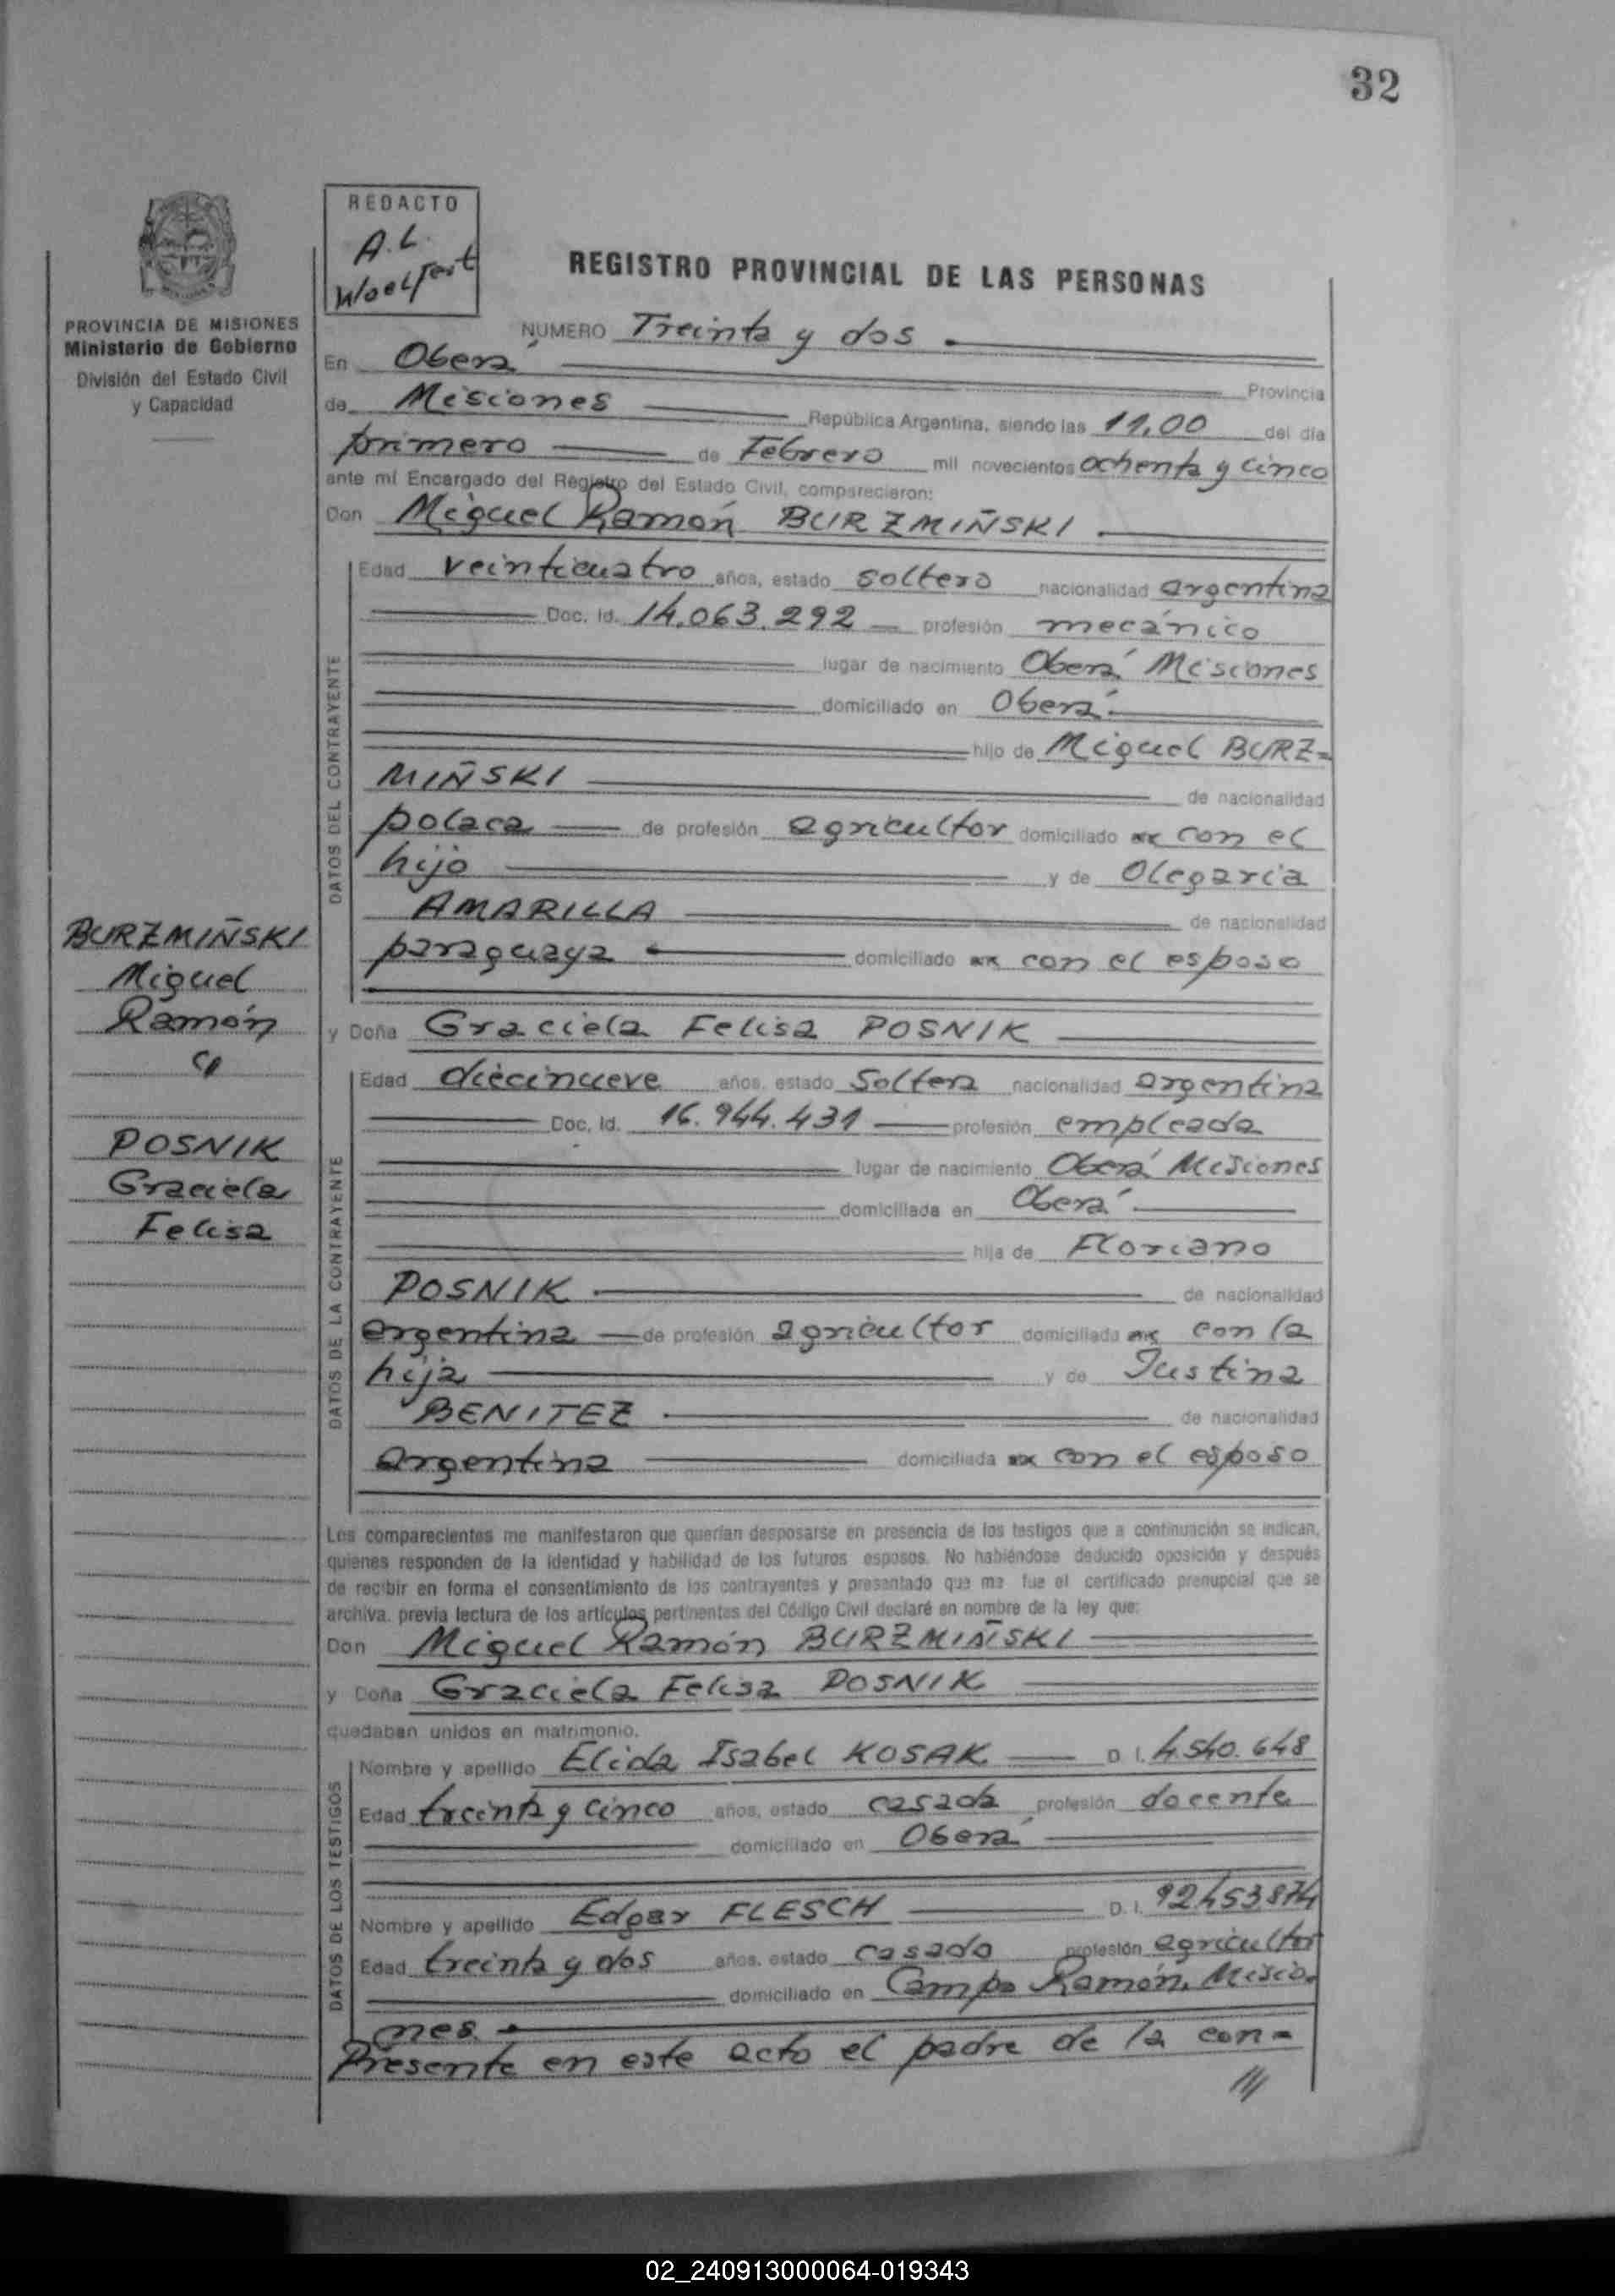 32
REDACTO
A.L.
Woelfert
REGISTRO PROVINCIAL DE LAS PERSONAS
PROVINCIA DE MISIONES
Ministerio de Gobierno
División del Estado Civil
y Capacidad
NUMERO Treinta y dos
En Oberá Provincia
de Misiones República Argentina, siendo las 11,00 del día
primero de Febrero mil novecientos ochenta y cinco
ante mí Encargado del Registro del Estado Civil, comparecieron:
Don Miguel Ramón BURZMIÑSKI
DATOS DEL CONTRAYENTE
Edad veinticuatro años, estado soltero nacionalidad argentina
Doc. Id. 14.063.292 profesión mecánico
lugar de nacimiento Oberá Misiones
domiciliado en Oberá
hijo de Miguel BURZ=
MIÑSKI de nacionalidad
polaca de profesión agricultor domiciliado con el
hijo y de Olegaria
AMARILLA de nacionalidad
paraguaya domiciliado con el esposo
BURZMIÑSKI
Miguel
Ramón
c/
POSNIK
Graciela
Felisa
y Doña Graciela Felisa POSNIK
DATOS DE LA CONTRAYENTE
Edad diecinueve años, estado Soltera nacionalidad argentina
Doc. Id. 16.944.431 profesión empleada
lugar de nacimiento Oberá Misiones
domiciliada en Oberá
hija de Floriano
POSNIK de nacionalidad
argentina de profesión agricultor domiciliado con la
hija y de Justina
BENITEZ de nacionalidad
argentina domiciliada con el esposo
Los comparecientes me manifestaron que querían desposarse en presencia de los testigos que a continuación se indican,
quienes responden de la identidad y habilidad de los futuros esposos. No habiéndose deducido oposición y después
de recibir en forma el consentimiento de los contrayentes y presentado que me fue el certificado prenupcial que se
archiva, previa lectura de los artículos pertinentes del Código Civil declaré en nombre de la ley que:
Don Miguel Ramón BURZMIÑSKI
y Doña Graciela Felisa POSNIK
quedaban unidos en matrimonio.
DATOS DE LOS TESTIGOS
Nombre y apellido Elida Isabel KOSAK D I. 4.540.648
Edad treinta y cinco años, estado casada profesión docente
domiciliado en Oberá
Nombre y apellido Edgar FLESCH D. I. 92.453.874
Edad treinta y dos años, estado casado profesión agricultor
domiciliado en Campo Ramón, Misio=
nes.
Presente en este acto el padre de la con=
///
02_240913000064-019343